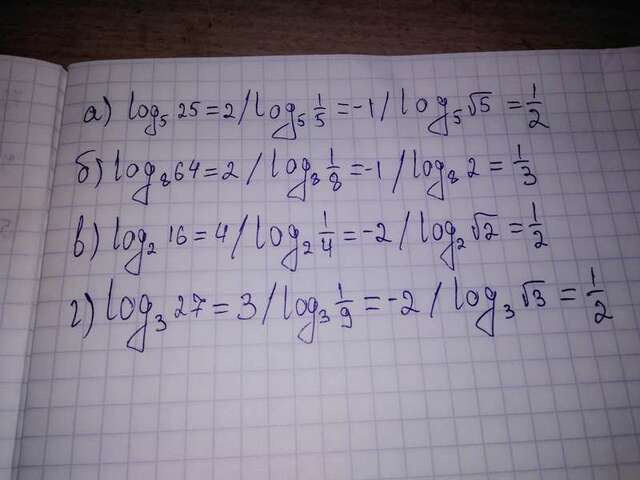 а) log₅ 25 = 2 / log₅ 1/5 = -1 / log₅ √5 = 1/2
б) log₈ 64 = 2 / log₈ 1/8 = -1 / log₈ 2 = 1/3
в) log₂ 16 = 4 / log₂ 1/4 = -2 / log₂ √2 = 1/2
г) log₃ 27 = 3 / log₃ 1/9 = -2 / log₃ √3 = 1/2